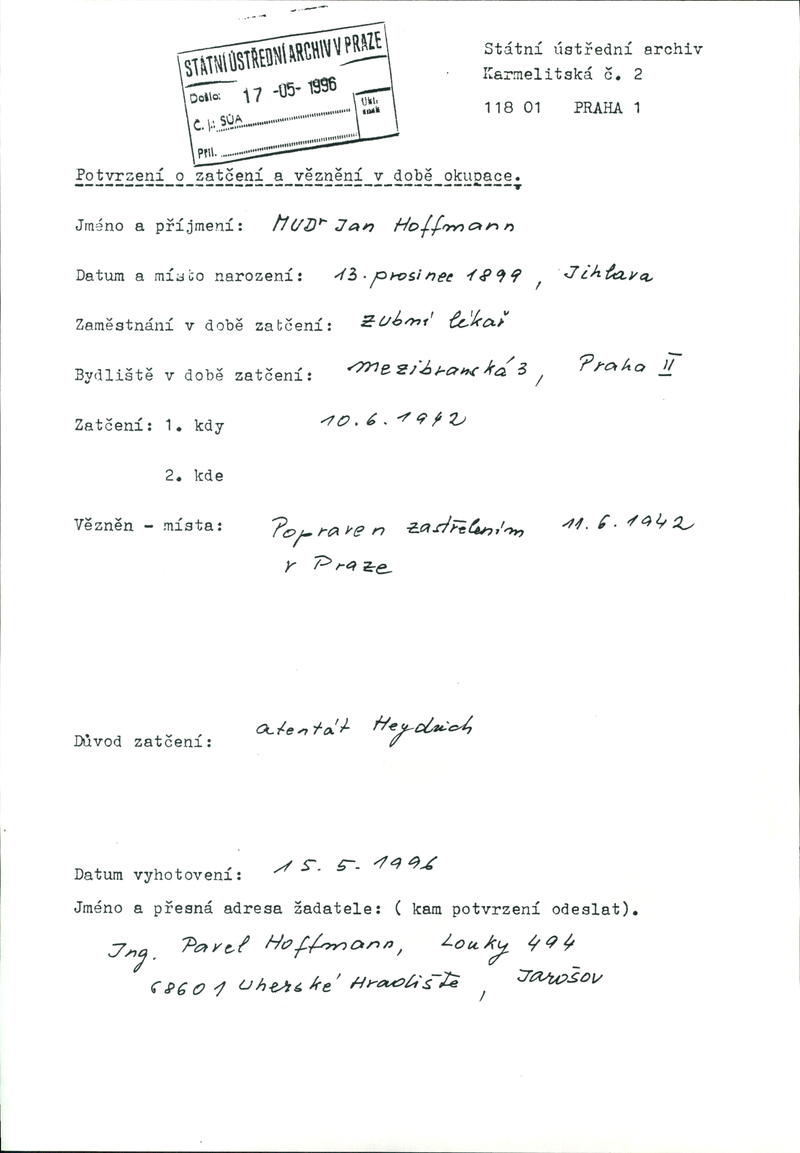 STÁTNÍ ÚSTŘEDNÍ ARCHIV V PRAZE
Došlo: 17 -05- 1996
Č. j.: SÚA
Ukl. znak
Příl.
Státní ústřední archiv
Karmelitská č. 2
118 01 PRAHA 1
Potvrzení o zatčení a věznění v době okupace.
Jméno a příjmení: MUDr Jan Hoffmann
Datum a místo narození: 13. prosinec 1899, Jihlava
Zaměstnání v době zatčení: zubní lékař
Bydliště v době zatčení: Mezibranská 3, Praha II
Zatčení: 1. kdy 10. 6. 1942
2. kde
Vězněn - místa: Popraven zastřelením 11. 6. 1942
v Praze
Důvod zatčení: atentát Heydrich
Datum vyhotovení: 15. 5. 1996
Jméno a přesná adresa žadatele: ( kam potvrzení odeslat).
Ing. Pavel Hoffmann, Louky 494
68601 Uherské Hradiště, Jarošov